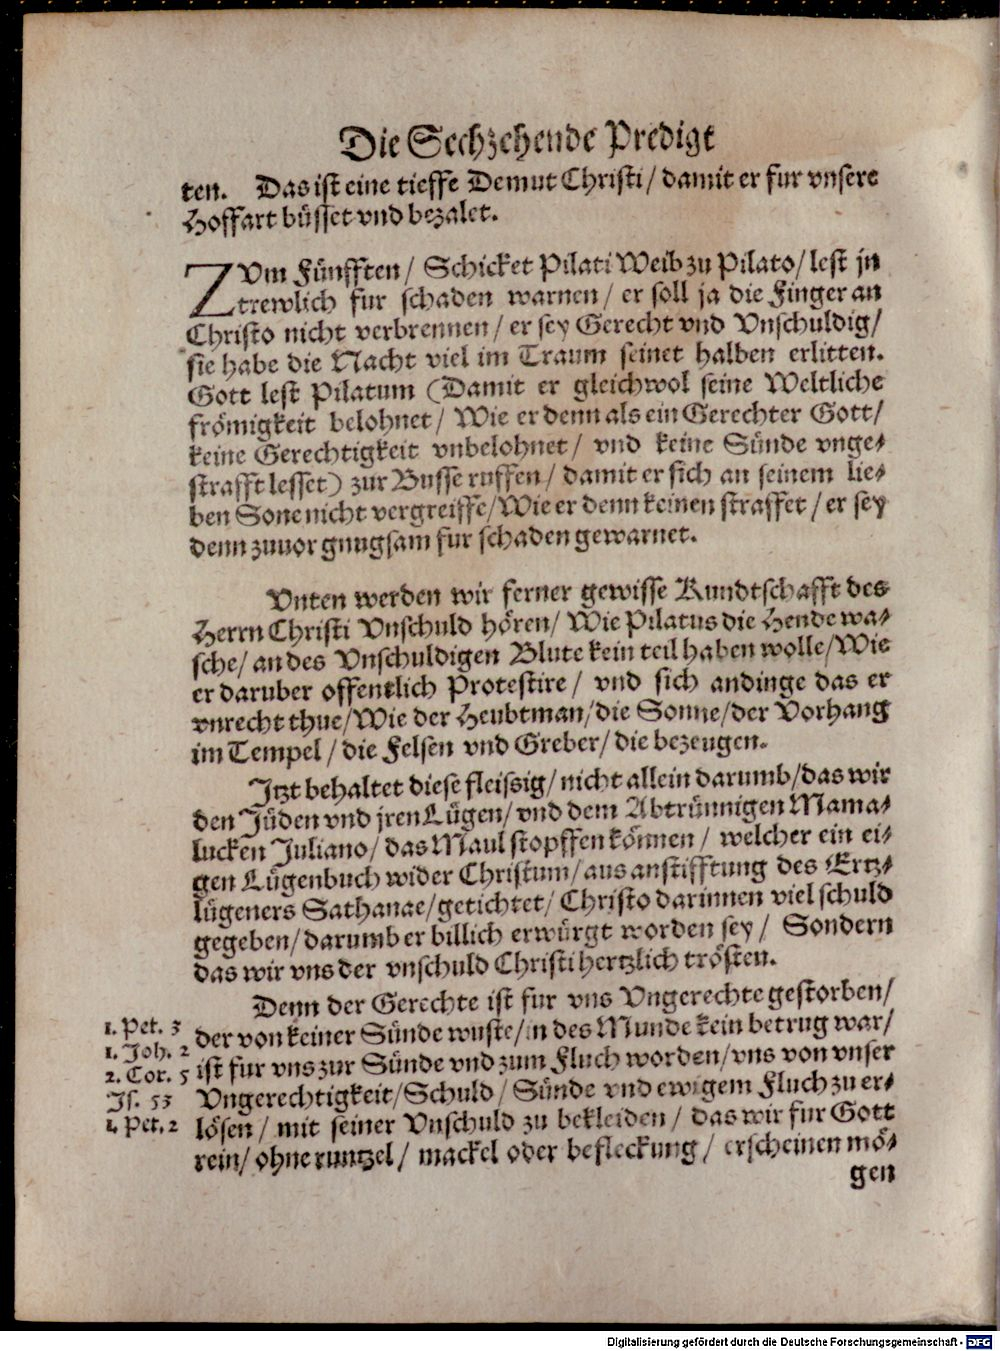 Die Sechzehende Predigt
ten. Das ist eine tieffe Demut Christi/ damit er fur vnsere
Hoffart büsset vnd bezalet.
ZVm Fünfften/ Schicket Pilati Weib zu Pilato/ lest jn
trewlich fur schaden warnen/ er soll ja die Finger an
Christo nicht verbrennen/ er sey Gerecht vnd Vnschuldig/
sie habe die Nacht viel im Traum seinet halben erlitten.
Gott lest Pilatum (Damit er gleichwol seine Weltliche
frömigkeit belohnet/ Wie er denn als ein Gerechter Gott/
keine Gerechtigkeit vnbelohnet/ vnd keine Sünde vnge-
strafft lesset) zur Busse ruffen/ damit er sich an seinem lie-
ben Sone nicht vergreiffe/ Wie er denn keinen straffet/ er sey
denn zuuor gnugsam fur schaden gewarnet.
Vnten werden wir ferner gewisse Kundtschafft des
Herrn Christi Vnschuld hören/ Wie Pilatus die Hende wa-
sche/ an des Vnschuldigen Blute kein teil haben wolle/ Wie
er daruber offentlich Protestire/ vnd sich andinge das er
vnrecht thue/ Wie der Heubtman/ die Sonne/ der Vorhang
im Tempel/ die Felsen vnd Greber/ die bezeugen.
Jtzt behaltet diese fleissig/ nicht allein darumb/ das wir
den Jüden vnd jren Lügen/ vnd dem Abtrünnigen Mama-
lucken Juliano/ das Maul stopffen können/ welcher ein ei-
gen Lügenbuch wider Christum/ aus anstifftung des Ertz-
lügeners Sathanae/ getichtet/ Christo darinnen viel schuld
gegeben/ darumb er billich erwürgt worden sey/ Sondern
das wir vns der vnschuld Christi hertzlich trösten.
Denn der Gerechte ist fur vns Vngerechte gestorben/
1. Pet. 3 der von keiner Sünde wuste/ in des Munde kein betrug war/
1. Joh. 2
2. Cor. 5 ist fur vns zur Sünde vnd zum Fluch worden/ vns von vnser
Js. 53 Vngerechtigkeit/ Schuld/ Sünde vnd ewigem Fluch zu er-
1. Pet. 2 lösen/ mit seiner Vnschuld zu bekleiden/ das wir fur Gott
rein/ ohne runtzel/ mackel oder befleckung/ erscheinen mö-
gen
Digitalisierung gefördert durch die Deutsche Forschungsgemeinschaft - DFG